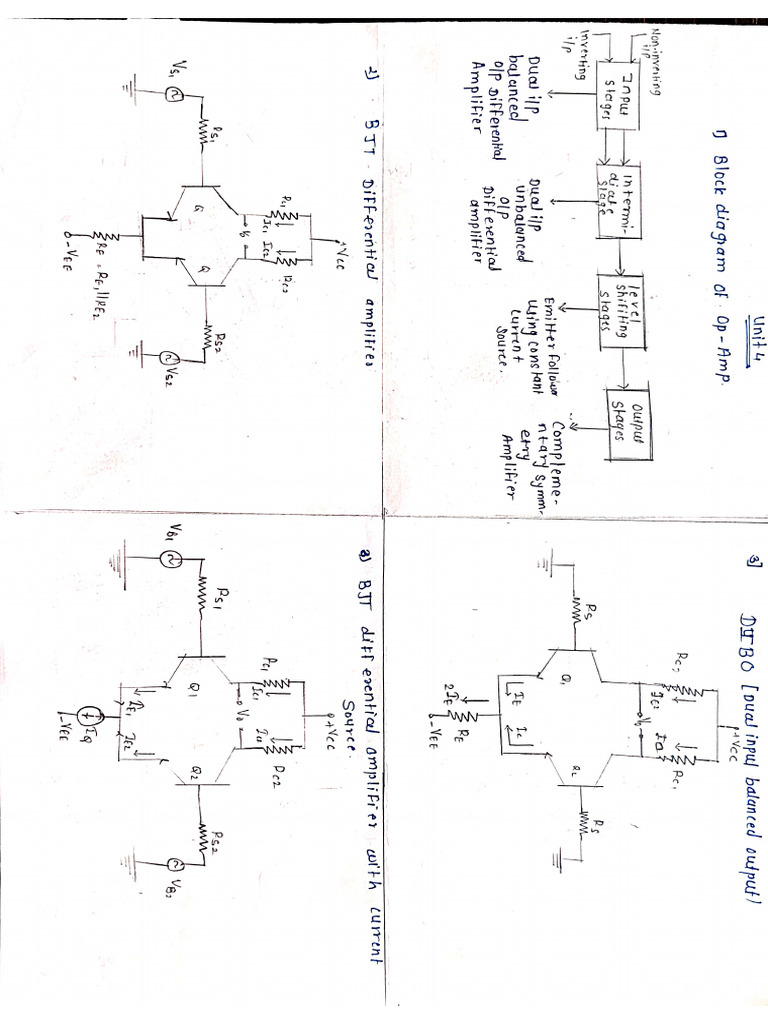 Unit 4
1) Block diagram of Op-Amp.
Non-inverting
i/p
Inverting
i/p
Input
stages
Intermi-
diate
stage
level
shifiting
stages
Output
stages
Dual i/p
balanced
o/p Differential
Amplifier
Dual i/p
unbalanced
o/p
Differential
amplifier
Emitter follower
using constant
current
source.
Compleme-
ntary symm-
etry
Amplifier
2) BJT Differential amplifier
+VCC
RC1
IC1
IC2
RC2
Vo
RS1
VS1
Q
Q
RS2
VS2
RE = RE1||RE2
-VEE
3] DIBO [Dual input balanced output]
+VCC
RC1
IC2
RC1
RS
Q1
RS
IE
2IE
RE
-VEE
3) BJT differential amplifier with current
Source.
+VCC
RC1
IC1
RC2
Vo
RS1
VB1
Q1
Q2
RS2
VB2
IE1
IE2
IQ
-VEE